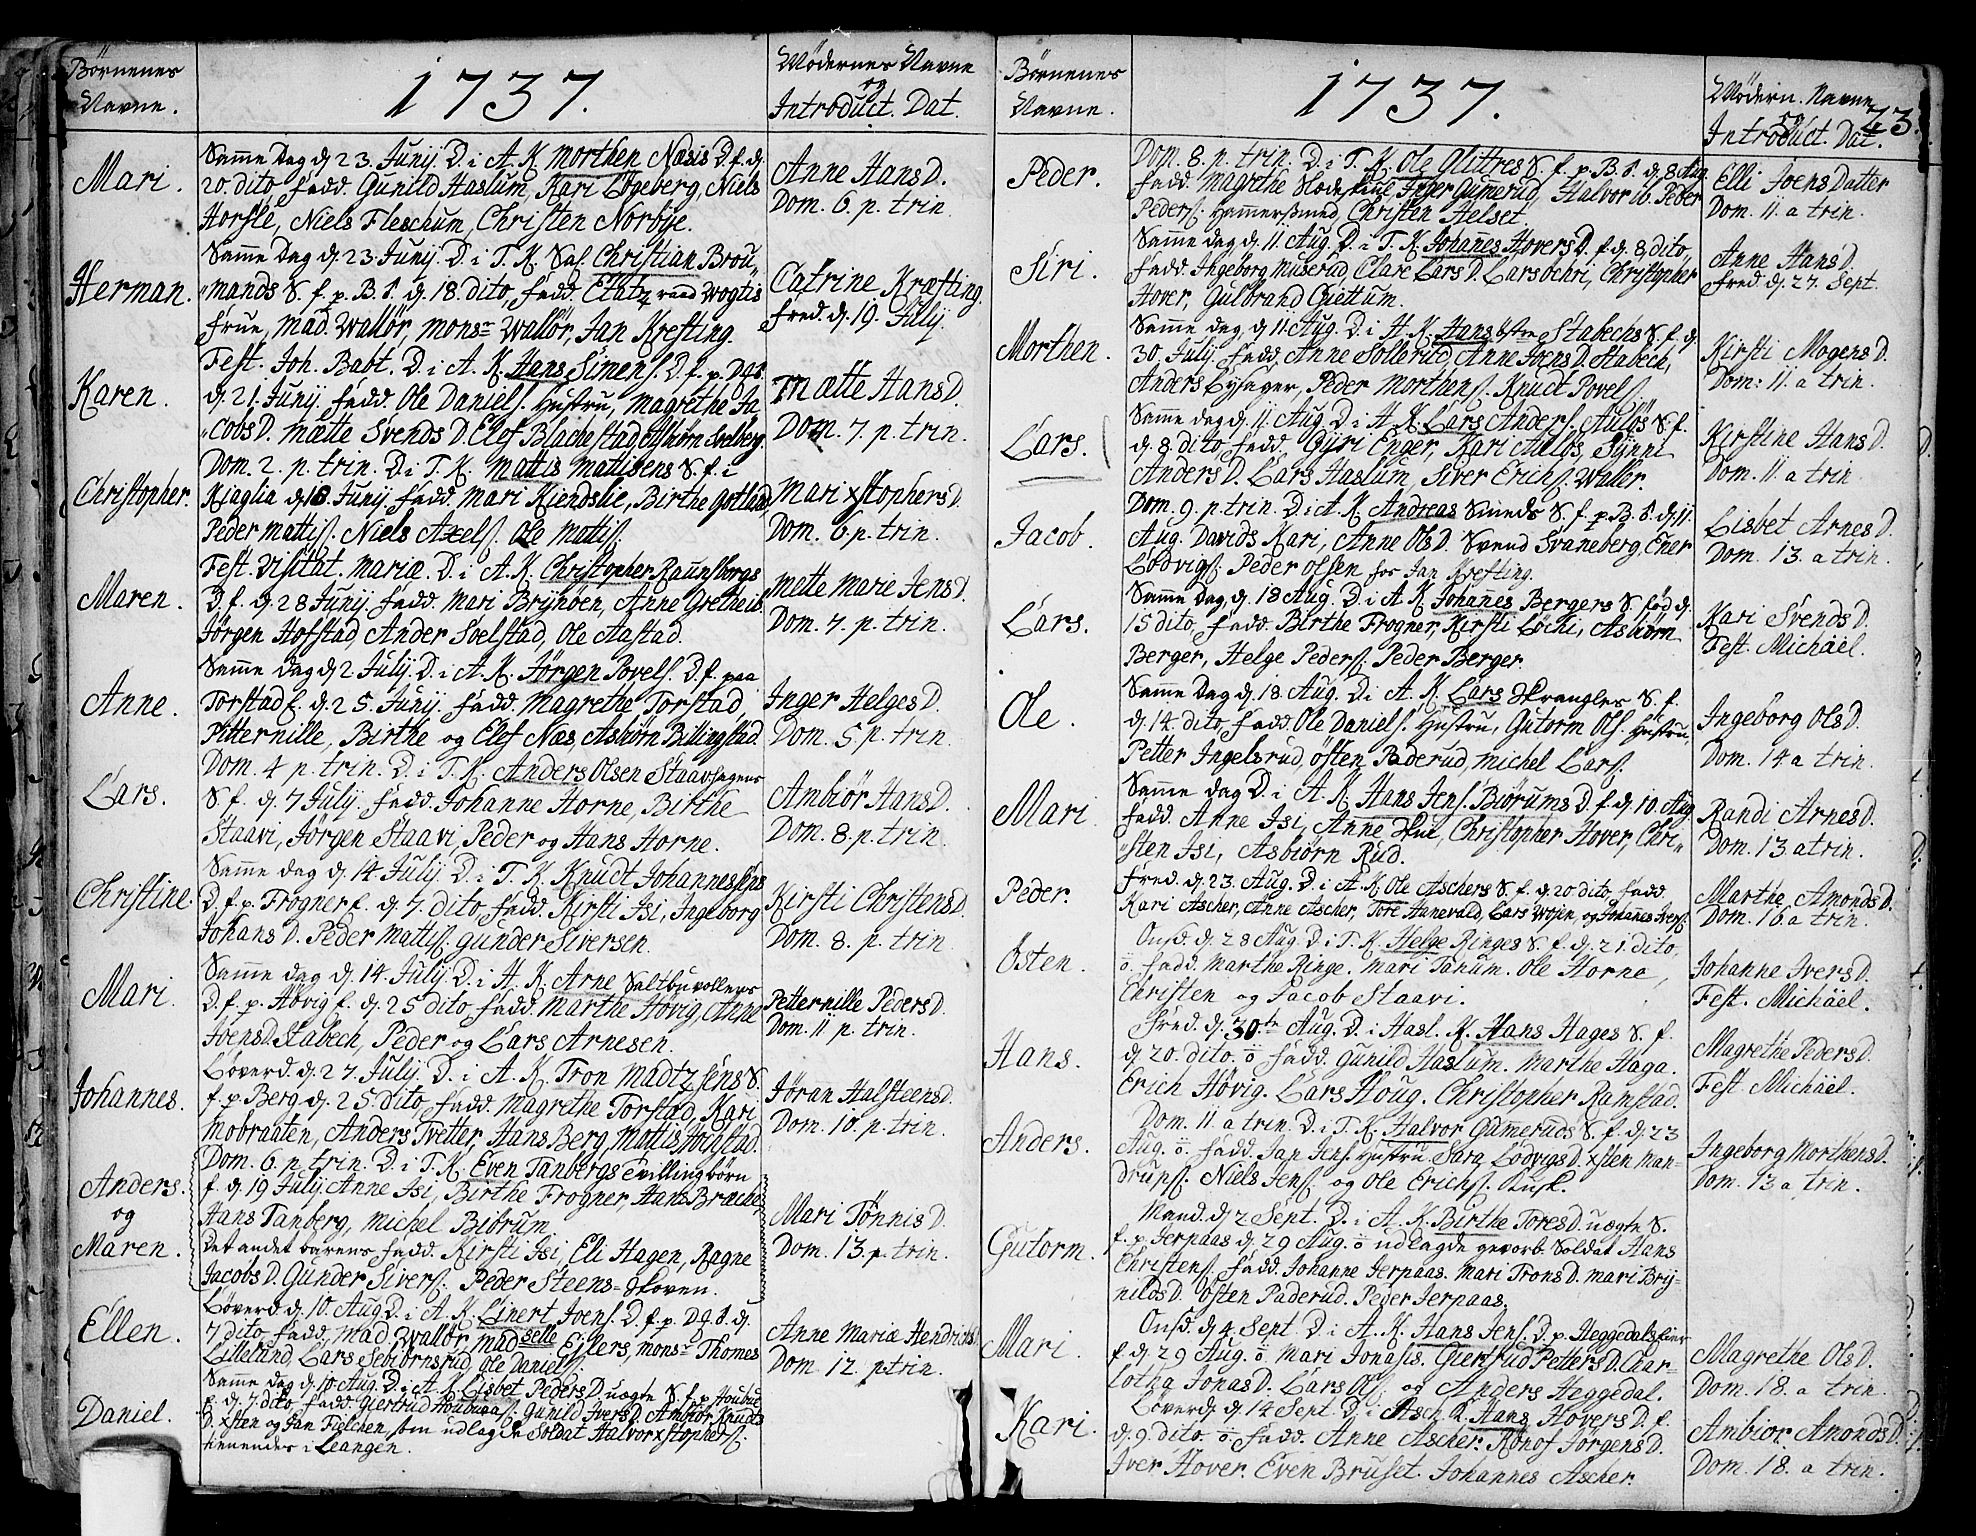 Børnenes
Navne.
1737.
Mödernes Navne
og
Introduct. Dat.
Mari.
Samme Dag d. 23. Junij. D. i A. K. Morthen Næsis D. f. d.
20. dito fadd. Gunild Haslum, Kari Løgeberg, Niels
Horsle, Niels Fleschum, Christen Norbye.
Anne HansD.
Dom. 6. p. trin.
Herman.
Samme Dag d. 23. Junij. D. i T. K. Sal. Christian Brou„
„mands S. f. p. B. S. d. 18. dito, fadd. Etatz raad Wogtis
frue, Mad. Wallør, Monsr Wallør, Jan Krefting.
Catrine Kræfting.
fred. d. 19. Julij.
Karen.
Fest. Joh. Babt. D. i A. K. Hans Simens. D. f. p. D.g.S.
d. 21. Junij. fadd. Ole Daniels. Hustru, Magrethe Ja
„cobsD. Mætte SvendsD. Elef Blachestad, Asbiørn Svelberg.
Mætte HansD.
Dom. 7. p. trin.
Christopher.
Dom. 2. p. trin. D. i T. K. Mattis Mattisens S. f. i
Kiaglia d. 18. Junij. fadd. Mari Kiendslie, Birthe Gotland,
Peder Mattis. Niels Axels. Ole Mattis.
Mari xstophersD.
Dom. 6. p. trin.
Maren.
Fest. Visitat. Mariæ. D. i A. K. Christopher Raunsborgs
D. f. d. 28 Junij. fadd. Mari Brynöen, Anne Grethe ib.
Jørgen Hofstad, Ander Soelstad, Ole Aastad.
Mette Marie JensD.
Dom. 7. p. trin.
Anne.
Samme Dag d. 2 Julij. D. i A. K. Jørgen Povels. D. f. paa
Torstad f. d. 25. Junij. fadd. Magrethe Torstad,
Pitternille, Birthe og Elef Næs, Asbiørn Billingstad.
Inger HelgesD.
Dom. 5. p. trin.
Lars.
Dom. 4 p. trin. D. i T. K. Anders Olsen Staavhagens
S. f. d. 7 Julij. fadd. Johanne Horne, Birthe
Staavi, Jørgen Staavi, Peder og Hans Horne.
Ambiör HansD.
Dom. 8. p. trin.
Christine.
Samme dag d. 14 Julij. D. i T. K. Knudt Johannessens
D. f. p. Frogner f. d. 7. dito, fadd. Kirsti Isi, Ingeborg
JohansD. Peder Mattis. Gunder Siversen.
Kirsti ChristensD.
Dom. 8. p. trin.
Mari.
Samme dag d. 14. Julij. D. i A. K. Arne Saltbuvollens
D. f. p. Høvig f. d. 25 dito, fadd. Marthe Hövig, Anne
JoensD. Stabech, Peder og Lars Arnesen.
Petternille PedersD.
Dom. 11 p. trin.
Johannes.
Løverd. d. 27. Julij. D. i A. K. Tron Madtzsens S.
f. p. Berg d. 25. dito, fadd. Magrethe Torstad, Kari
Mobraaten, Anders Tvetter, Hans Berg, Mattis Hofstad.
Jøran HalsteensD.
Dom. 10. p. trin.
Anders.
og
Maren.
Dom. 6. p. trin. D. i T. K. Even Tanbergs Tvillingbörn
f. d. 19 Julij. Anne Isi, Birthe Frogner, Hans Bræche,
Hans Tanberg, Michel Bjørum.
Det andet barens fadd. Kirsti Isi, Eli Hagen, Ragne
JacobsD. Gunder Sivers. Peder Steens=Skoven.
Mari TönnisD.
Dom. 13. p. trin.
Ellen.
Løverd. d. 10. Aug. D. i A. K. Linert Joens. D. f. p. D.g.S. d.
7 dito, fadd. Mad. Wallør, Madselle Eilers, Monsr Thomes
Lillelund, Lars Sebiörnsrud, Ole Daniels.
Anne Mariæ Hendrichs.
Dom. 12. p trin.
Daniel.
Samme dag d. 10. Aug. D. i A. K. Lisbet PedersD. uægte S. f. p. Houbue
f. d. 7. dito, fadd. Giertrud Houbuaas. Gunild IversD. Ambiör Knudts
D. xsten og Jan Fielchen, som udlagde Soldat Halvor xstophers.
tienendes i Leangen.
Børnenes
Navne.
1737.
Mödern. Navne
og
Introduct. Dat.
73.
Peder.
Dom. 8. p. trin. D. i T. K. Ole Glittres S. f. p. B. S. d. 8 Aug.
fadd. Magrethe Inger Gumerud, Halvor ib. Peder
Peders. Hammersmed, Christen Helset.
Elli Joens Datter
Dom. 11. a trin.
Siri.
Samme dag d. 11. Aug. D. i T. K. Johannes HoversD. f. d. 8. dito,
fadd. Ingeborg Muserud, Clare LarsD. Lars Ochri, Christopher
Hover, Gulbrand Giettum.
Anne HansD.
fred. d. 27. Sept.
Morthen.
Samme dag, d. 11 Aug. D. i A. K. Hans Østre Stabechs S. f. d.
30. Julij. fadd. Anne Sollerud, Anne JoensD. Stabech,
Anders Lysager, Peder Morthens. Knudt Povels.
Kirsti MogensD.
Dom: 11. a trin.
Lars.
Samme dag d. 11 Aug. D. i A. K. Lars Anders. Auløs S. f.
d. 8. dito, fadd. Gyri Enger, Kari Auløs, Synni
AndersD. Lars Haslum, Siver Erichs. Waller.
Kirstine HansD.
Dom. 11. a trin
Jacob.
Dom. 9. p. trin. D. i A. K. Andreas Smeds S. f. p. B. S. d. 11.
Aug. Davids Kari, Anne OlsD. Svend Svaneberg, Ener
Lödvigs. Peder Olsen hos Jan Krefting.
Lisbet ArnesD.
Dom. 13. a trin.
Lars.
Samme Dag, d. 18 Aug. D. i A. K. Johannes Bergers S. fød d.
15 dito, fadd. Birthe Frogner, Kirsti Løchi, Asbiørn
Berger, Helge Peders. Peder Berger.
Kari SvendsD.
Fest. Michäel.
Ole.
Samme Dag d. 18. Aug. D. i A. K. Lars Skrangles S. f.
d. 14. dito, fadd. Ole Daniels. Hustru, Gutorm Ols. Hustru,
Petter Ingelsrud, östen Paderud, Michel Lars.
Ingeborg OlsD.
Dom. 14. a trin.
Mari.
Samme dag D. i A. K. Hans Jens. Biørums D. f. d. 10. Aug.
fadd. Anne Isi, Anne Skui, Christopher Hover, Chri„
„sten Isi, Asbiørn Rud.
Randi ArnesD.
Dom. 13. a trin.
Peder.
fred. d. 23. Aug. D. i A. K. Ole Aschers S. f. d. 20 dito, fadd.
Kari Ascher, Anne Ascher, Tore Hanevald, Lars Wøjen, og Johanes Ivers.
Marthe AmondsD.
Dom. 16. a trin.
Østen.
Onsd. d. 28 Aug. D. i T. K. Helge Ringes S. f. d. 21. dito.
fadd. Marthe Ringe. Mari Tanum. Ole Horne,
Christen og Jacob Staavi.
Johanne IversD.
Fest. Michäel.
Hans.
fred. d. 30.te Aug. D. i Hasl. K. Hans Hages S. f.
d. 20. dito. fadd. Gunild Haslum. Marthe Haga.
Erich Høvig. Lars Houg. Christopher Ramstad.
Magrethe PedersD.
Fest. Michäel.
Anders.
Dom. 11. a trin. D. i T. K. Halvor Gumeruds S. f. d. 23
Aug. fadd. Jan Jens. Hustru. Sara LödvigsD. xsten Man=
Drups. Niels Jens. og Ole Erichs. Lusk.
Ingeborg MorthensD.
Dom. 13 a trin.
Gutorm.
Mand. d. 2 Sept. D. i A. K. Birthe ToresD. uægte S.
f. p. Jerpaas d. 29 Aug. udlagde gevorb. Soldat Hans
Christens. fadd. Johanne Jerpaas. Mari TronsD. Mari Bry=
nildsD. Østen Paderud. Peder Jerpaas.
Mari.
Onsd. d. 4. Sept. D. i A. K. Hans Jens. D. p. Heggedals eier
f. d. 29 Aug. Mari Jonasis. Giertrud PettersD. Char=
lotha JonasD. Lars Ols. og Anders Heggedal.
Magrethe OlsD.
Dom. 18. a trin.
Kari.
Løverd. d. 14 Sept. D. i Asch. K. Hans HoversD. f.
d. 9. dito. fadd. Anne Ascher. Ronof JørgensD.
Iver Hover. Even Bruset. Johannes Ascher.
Ambiør AmondsD.
Dom. 18. a trin.